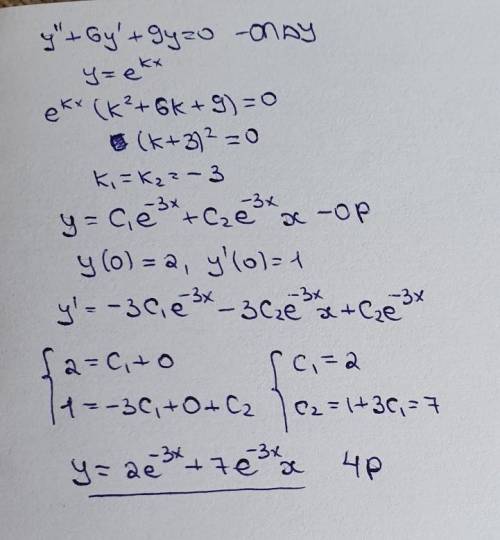 y'' + 6y' + 9y = 0 - ОЛДУ
y = e^{kx}
e^{kx} (k² + 6k + 9) = 0
(k + 3)² = 0
k₁ = k₂ = -3
y = C₁e^{-3x} + C₂e^{-3x} x - ОР
y(0) = 2, y'(0) = 1
y' = -3C₁e^{-3x} - 3C₂e^{-3x} x + C₂e^{-3x}
{ 2 = C₁ + 0 { C₁ = 2
1 = -3C₁ + 0 + C₂ C₂ = 1 + 3C₁ = 7
y = 2e^{-3x} + 7e^{-3x} x ЧР